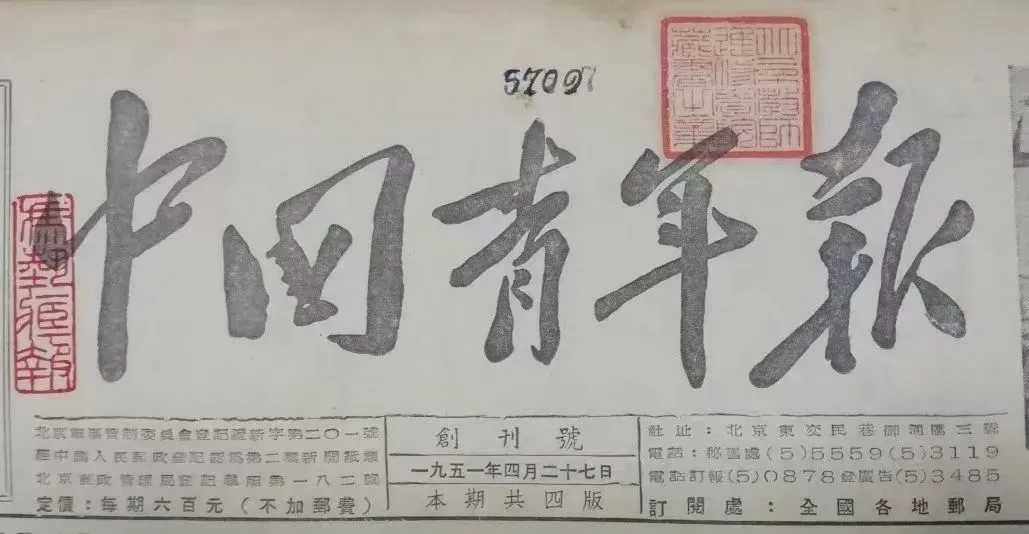 57097
中国青年报
北京軍事管制委員會登記證新字第二〇一號
經中國人民郵政登記認爲第二類新聞紙類
北京郵政管理局登記執照第一八二號
定價:每期六百元(不加郵費)
創刊號
一九五一年四月二十七日
本期共四版
社址:北京東交民巷御河橋三號
電話:秘書處(5)5559(5)3119
電話訂報(5)0878登廣告(5)3485
訂閱處:全國各地郵局